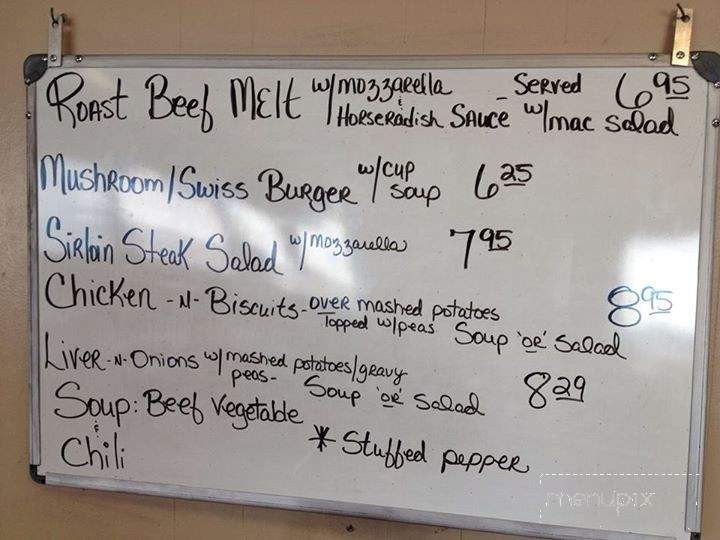 Roast Beef Melt w/mozzarella & Horseradish Sauce - Served w/mac salad 6.95
Mushroom/Swiss Burger w/cup soup 6.25
Sirloin Steak Salad w/mozzarella 7.95
Chicken -N- Biscuits - over mashed potatoes 8.95
Topped w/peas Soup 'or' Salad
Liver -N- Onions w/mashed potatoes/gravy
peas - Soup 'or' Salad 8.29
Soup: Beef Vegetable
& Chili
* Stuffed pepper
menupix